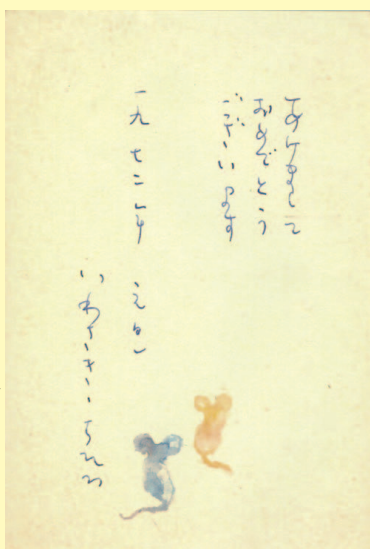 あけまして
おめでとう
ございます
一九七二年 元旦
いわさきちひろ